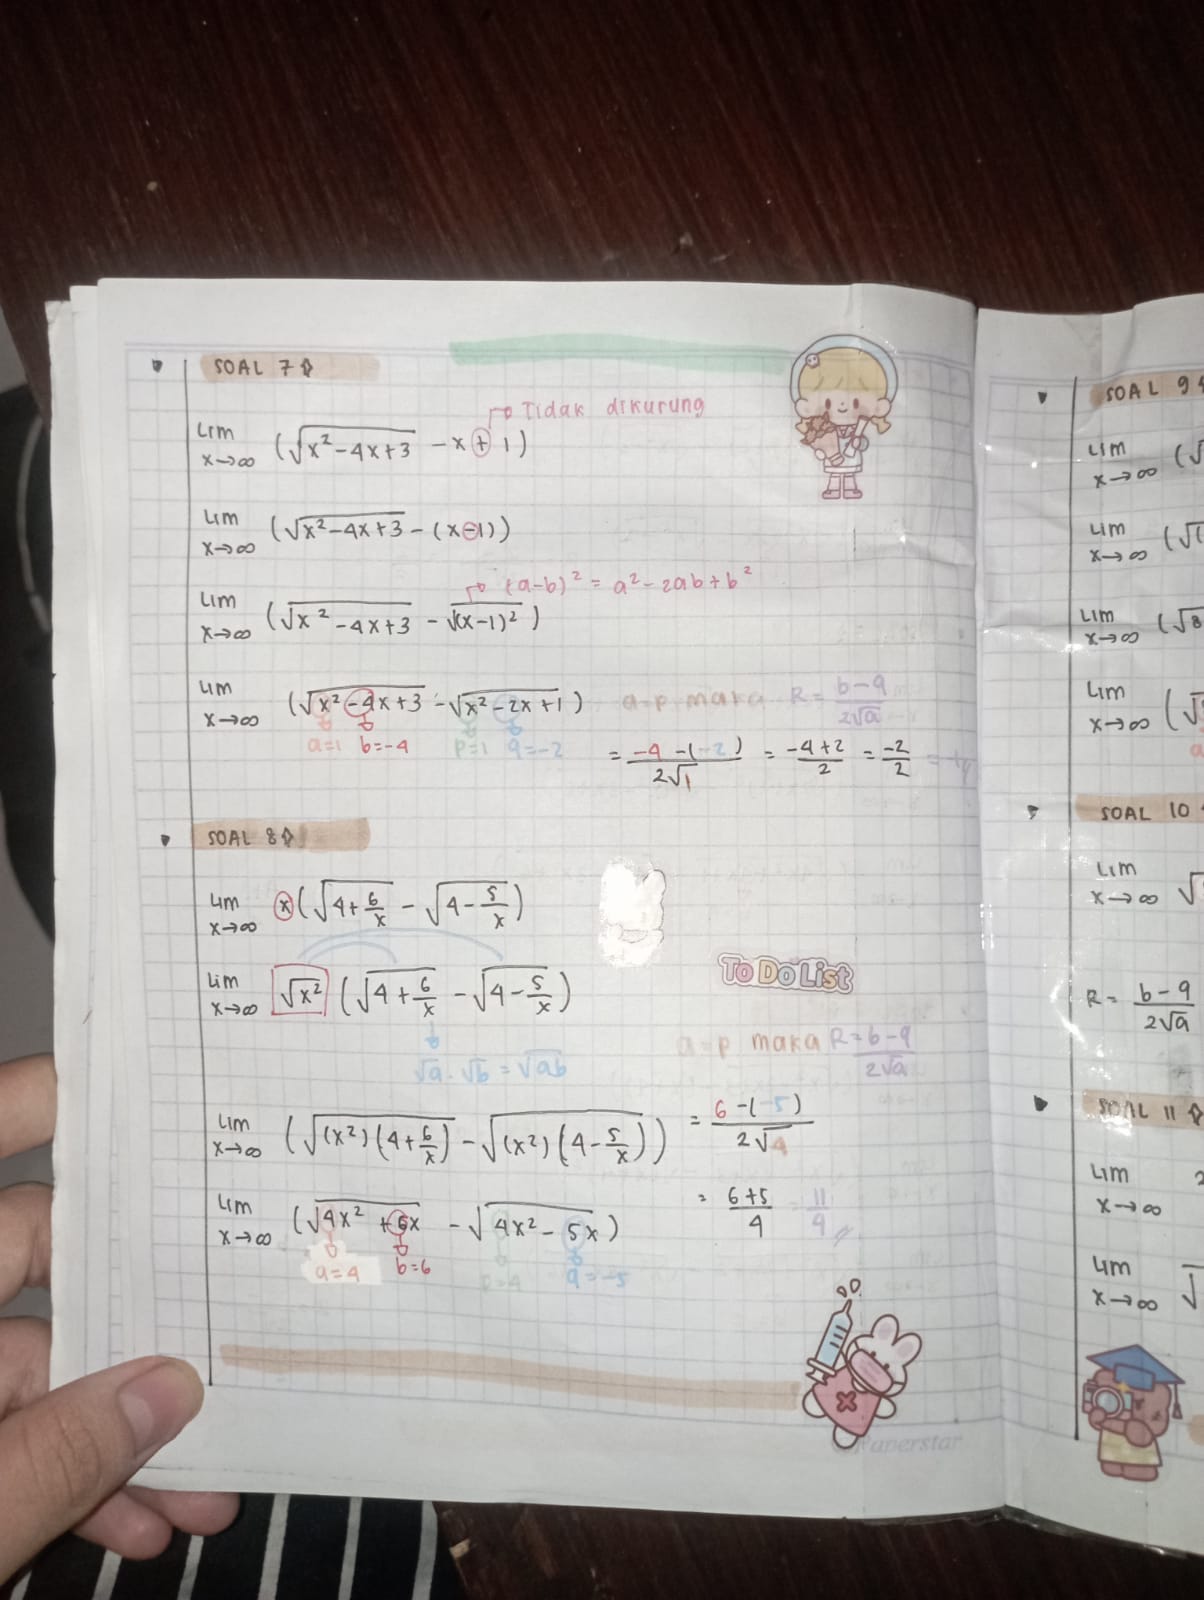 SOAL 7
Tidak dikurung
lim x→∞ (√x²-4x+3 - x + 1)
lim x→∞ (√x²-4x+3 - (x-1))
(a-b)² = a²-2ab+b²
lim x→∞ (√x²-4x+3 - √(x-1)²)
lim x→∞ (√x²-4x+3 - √x²-2x+1) a=p maka R = b-q / 2√a
a=1 b=-4 p=1 q=-2
= -4-(-2) / 2√1 = -4+2 / 2 = -2 / 2
SOAL 8
lim x→∞ x(√4+6/x - √4-5/x)
lim x→∞ √x² (√4+6/x - √4-5/x)
To Do List
√a . √b = √ab
a=p maka R = b-q / 2√a
lim x→∞ (√(x²)(4+6/x) - √(x²)(4-5/x)) = 6-(-5) / 2√4
lim x→∞ (√4x²+6x - √4x²-5x) = 6+5 / 4 = 11 / 4
a=4 b=6 p=4 q=-5
Paperstar
SOAL 9
lim x→∞ (√
lim x→∞ (√(
lim x→∞ (√8
lim x→∞ (√
SOAL 10
lim x→∞ √
R = b-q / 2√a
SOAL 11
lim x→∞ 2
lim x→∞ √